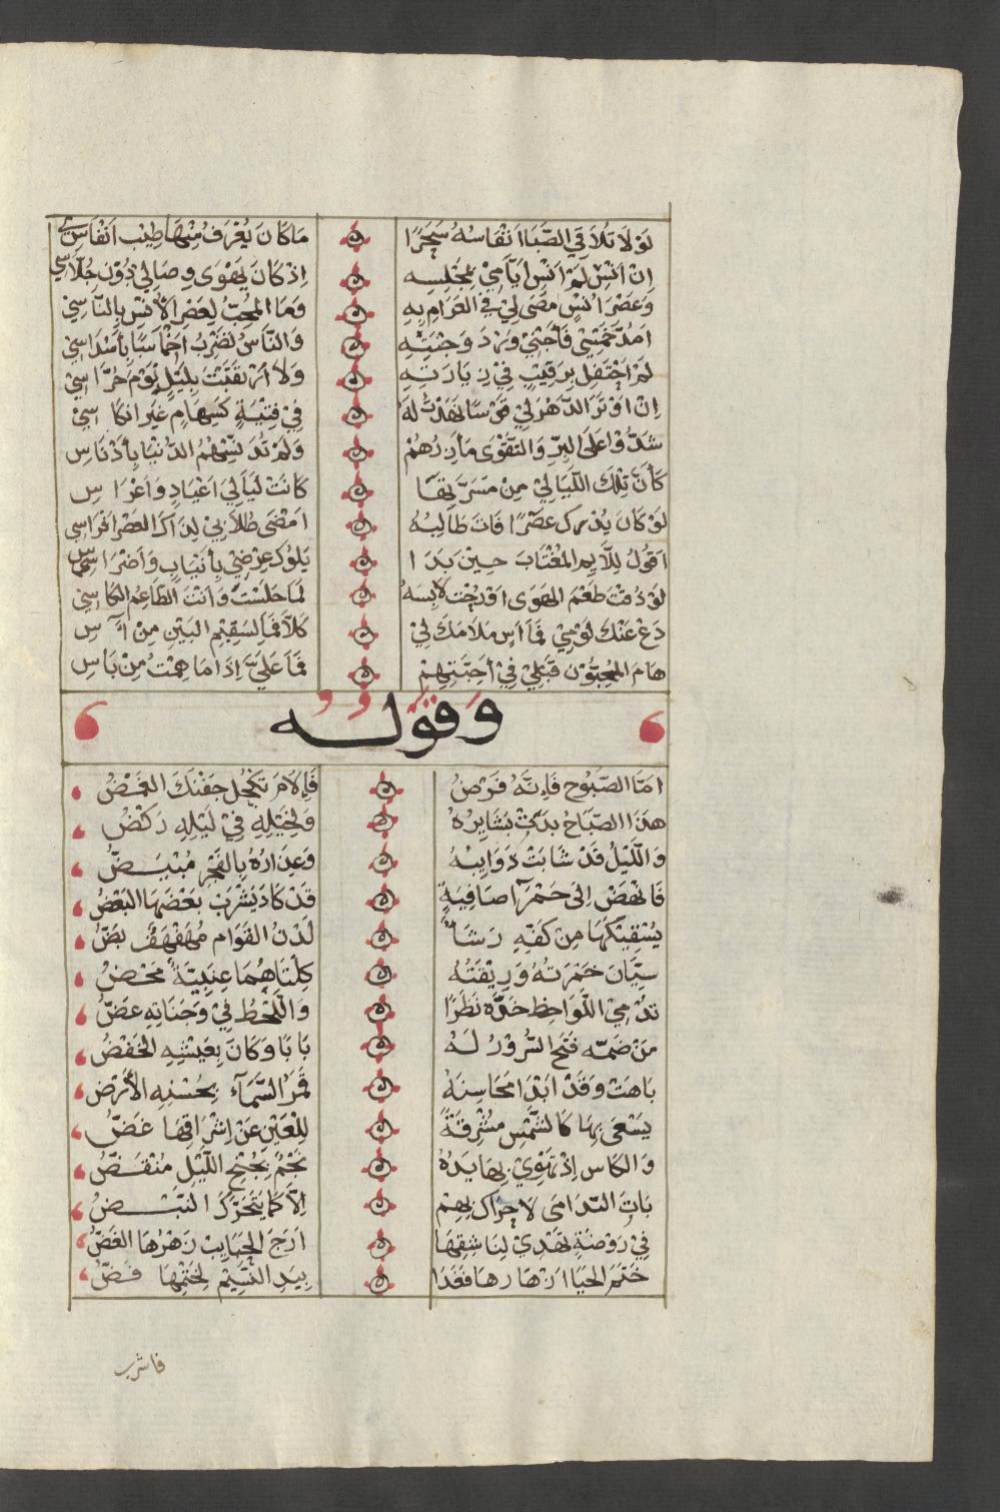 لَوْ لَا تُلَاقِي الصَّبَا اَنْفَاسُهُ سَحَرًا مَا كَانَ يُعْرَفُ مِنْهَا طِيْبُ اَنْفَاسِيْ
اِنْ اَنْسَ لَمْ اَنْسَ اَيَّامِيْ بِمَجْلِسِهِ اِذْ كَانَ يَهْوَى وِصَالِيْ دُوْنَ جُلَّاسِيْ
وَعَصْرَ اُنْسٍ مَضَى لِيْ فِي الغَرَامِ بِهِ وَمَا المُحِبُّ لِعَصْرِ الْاُنْسِ بِالنَّاسِيْ
اَمُدُّ خَمْسِيْ فَاَجْنِيْ وَرْدَ وَجْنَتِهِ وَالنَّاسُ تَضْرِبُ اَخْمَاسًا بِأَسْدَاسِيْ
لَمْ اَحْتَفِلْ بِرَقِيْبٍ فِيْ زِيَارَتِهِ وَلَا ارْتَقَبْتُ بِلَيْلٍ نَوْمَ حُرَّاسِيْ
اِنْ اَوْتَرَ الدَّهْرُ لِيْ قَوْسًا نَهَدْتُ لَهُ فِيْ فِتْيَةٍ كَسِهَامٍ غَيْرِ انْكَاسِيْ
شَدُّوْا عَلَى البِرِّ وَالتَّقْوَى مَآزِرُهُمْ وَلَمْ تُدَنِّسْهُمُ الدُّنْيَا بِأَدْنَاسِ
كَأَنَّ تِلْكَ اللَّيَالِيْ مِنْ مَسَرَّتِهَا كَانَتْ لَيَالِيَ اَعْيَادٍ وَاَعْرَاسِ
لَوْ كَانَ يُدْرِكُ عَصْرًا فَاتَ طَالِبُهُ اَمْضَى طُلَابِيْ لِذَاكَ العَصْرِ افْرَاسِيْ
اَقُوْلُ لِلَّايِمِ المُغْتَابِ حِيْنَ بَدَا يَلُوْكُ عِرْضِيْ بِأَنْيَابٍ وَاَضْرَاسِ
لَوْ ذُقْتَ طَعْمَ الهَوَى اَوْ بِتَّ لَابِسَهُ لَمَا جَلَسْتَ وَاَنْتَ الطَّاعِمُ الكَاسِيْ
دَعْ عَنْكَ لَوْمِيْ فَمَا اٰسٍ مَلَامَكَ لِيْ كَلَّا فَمَا لِسَقِيْمِ البَيْنِ مِنْ اٰسِ
هَامَ المُحِبُّوْنَ قَبْلِيْ فِيْ أَحِبَّتِهِمْ فَمَا عَلَيَّ اِذَا مَا هِمْتُ مِنْ بَاسِ
وَقَوْلُه
اَمَّا الصَّبُوْحُ فَاِنَّهُ فَرْضُ فَاِلَامَ تَكْحُلُ جَفْنَكَ الغَمْضُ
هَذَا الصَّبَاحُ بَدَتْ بَشَايِرُهُ وَلِخَيْلِهِ فِيْ لَيْلِهِ رَكْضُ
وَاللَّيْلُ قَدْ شَابَتْ ذَوَايِبُهُ وَعِذَارُهُ بِالفَجْرِ مُبْيَضُّ
فَانْهَضْ اِلَى حَمْرَآ صَافِيَةٍ قَدْ كَادَ يَشْرَبُ بَعْضَهَا البَعْضُ
يُسْقِيْكَهَا مِنْ كَفِّهِ رَشَأٌ لَدْنُ القَوَامِ مُهَفْهَفٌ بَضُّ
سِيَّانَ خَمْرَتُهُ وَرِيْقَتُهُ كِلْتَاهُمَا عِنَبِيَّةٌ مَحْضُ
تُدْمِيْ اللَّوَاحِظُ خَدَّهُ نَظَرًا وَاللَّحْظُ فِيْ وَجَنَاتِهِ عَضُّ
مَنْ ضَمَّه فَتَحَ السُّرُوْرُ لَهُ بَابًا وَكَانَ بِعَيْشِهِ الخَفْضُ
بَاهَتْ وَقَدْ اَبْدَا مَحَاسِنَهُ قَمَرَ السَّمَآءِ بِحُسْنِهِ الْأَرْضُ
يَسْعَى بِهَا كَالشَّمْسِ مُشْرِقَةً لِلْعَيْنِ عَنْ اِشْرَاقِهَا غَضُّ
وَالكَاسُ اِذْ تَهْوِيْ بِهَا يَدُهُ نَجْمٌ بِجُنْحِ اللَّيْلِ مُنْقَضُّ
بَاتَ النَّدَامَى لَا حِرَاكَ بِهِمْ اِلَّا كَمَا يَتَحَرَّكُ النَّبْضُ
فِيْ رَوْضَةٍ تَهْدِيْ لِنَاشِقِهَا اَرَجَ الحَبَايِبِ زَهْرُهَا الغَضُّ
خَتَمَ الحَيَا ازْهَارَهَا فَغَدَا بِيَدِ النَّسِيْمِ لِخَتْمِهَا فَضُّ
فاشرب